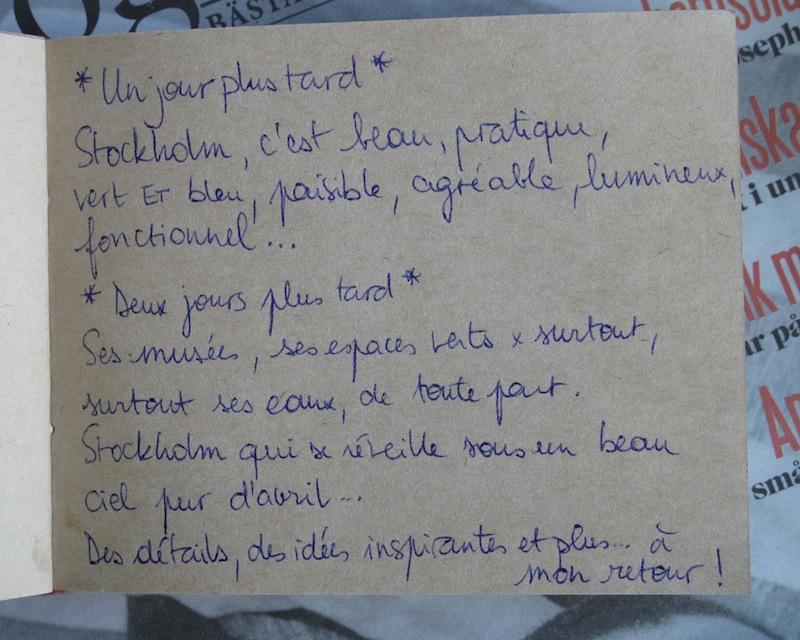 BÄSTA
* Un jour plus tard *
Stockholm, c'est beau, pratique,
vert ET bleu, paisible, agréable, lumineux,
fonctionnel...
* Deux jours plus tard *
Ses musées, ses espaces verts x surtout,
surtout ses eaux, de toute part.
Stockholm qui se réveille sous un beau
ciel pur d'avril...
Des détails, des idées inspirantes et plus... à
mon retour !
i un
små